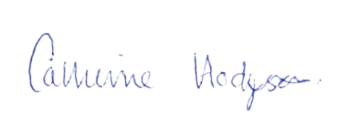 Catherine Hodgson